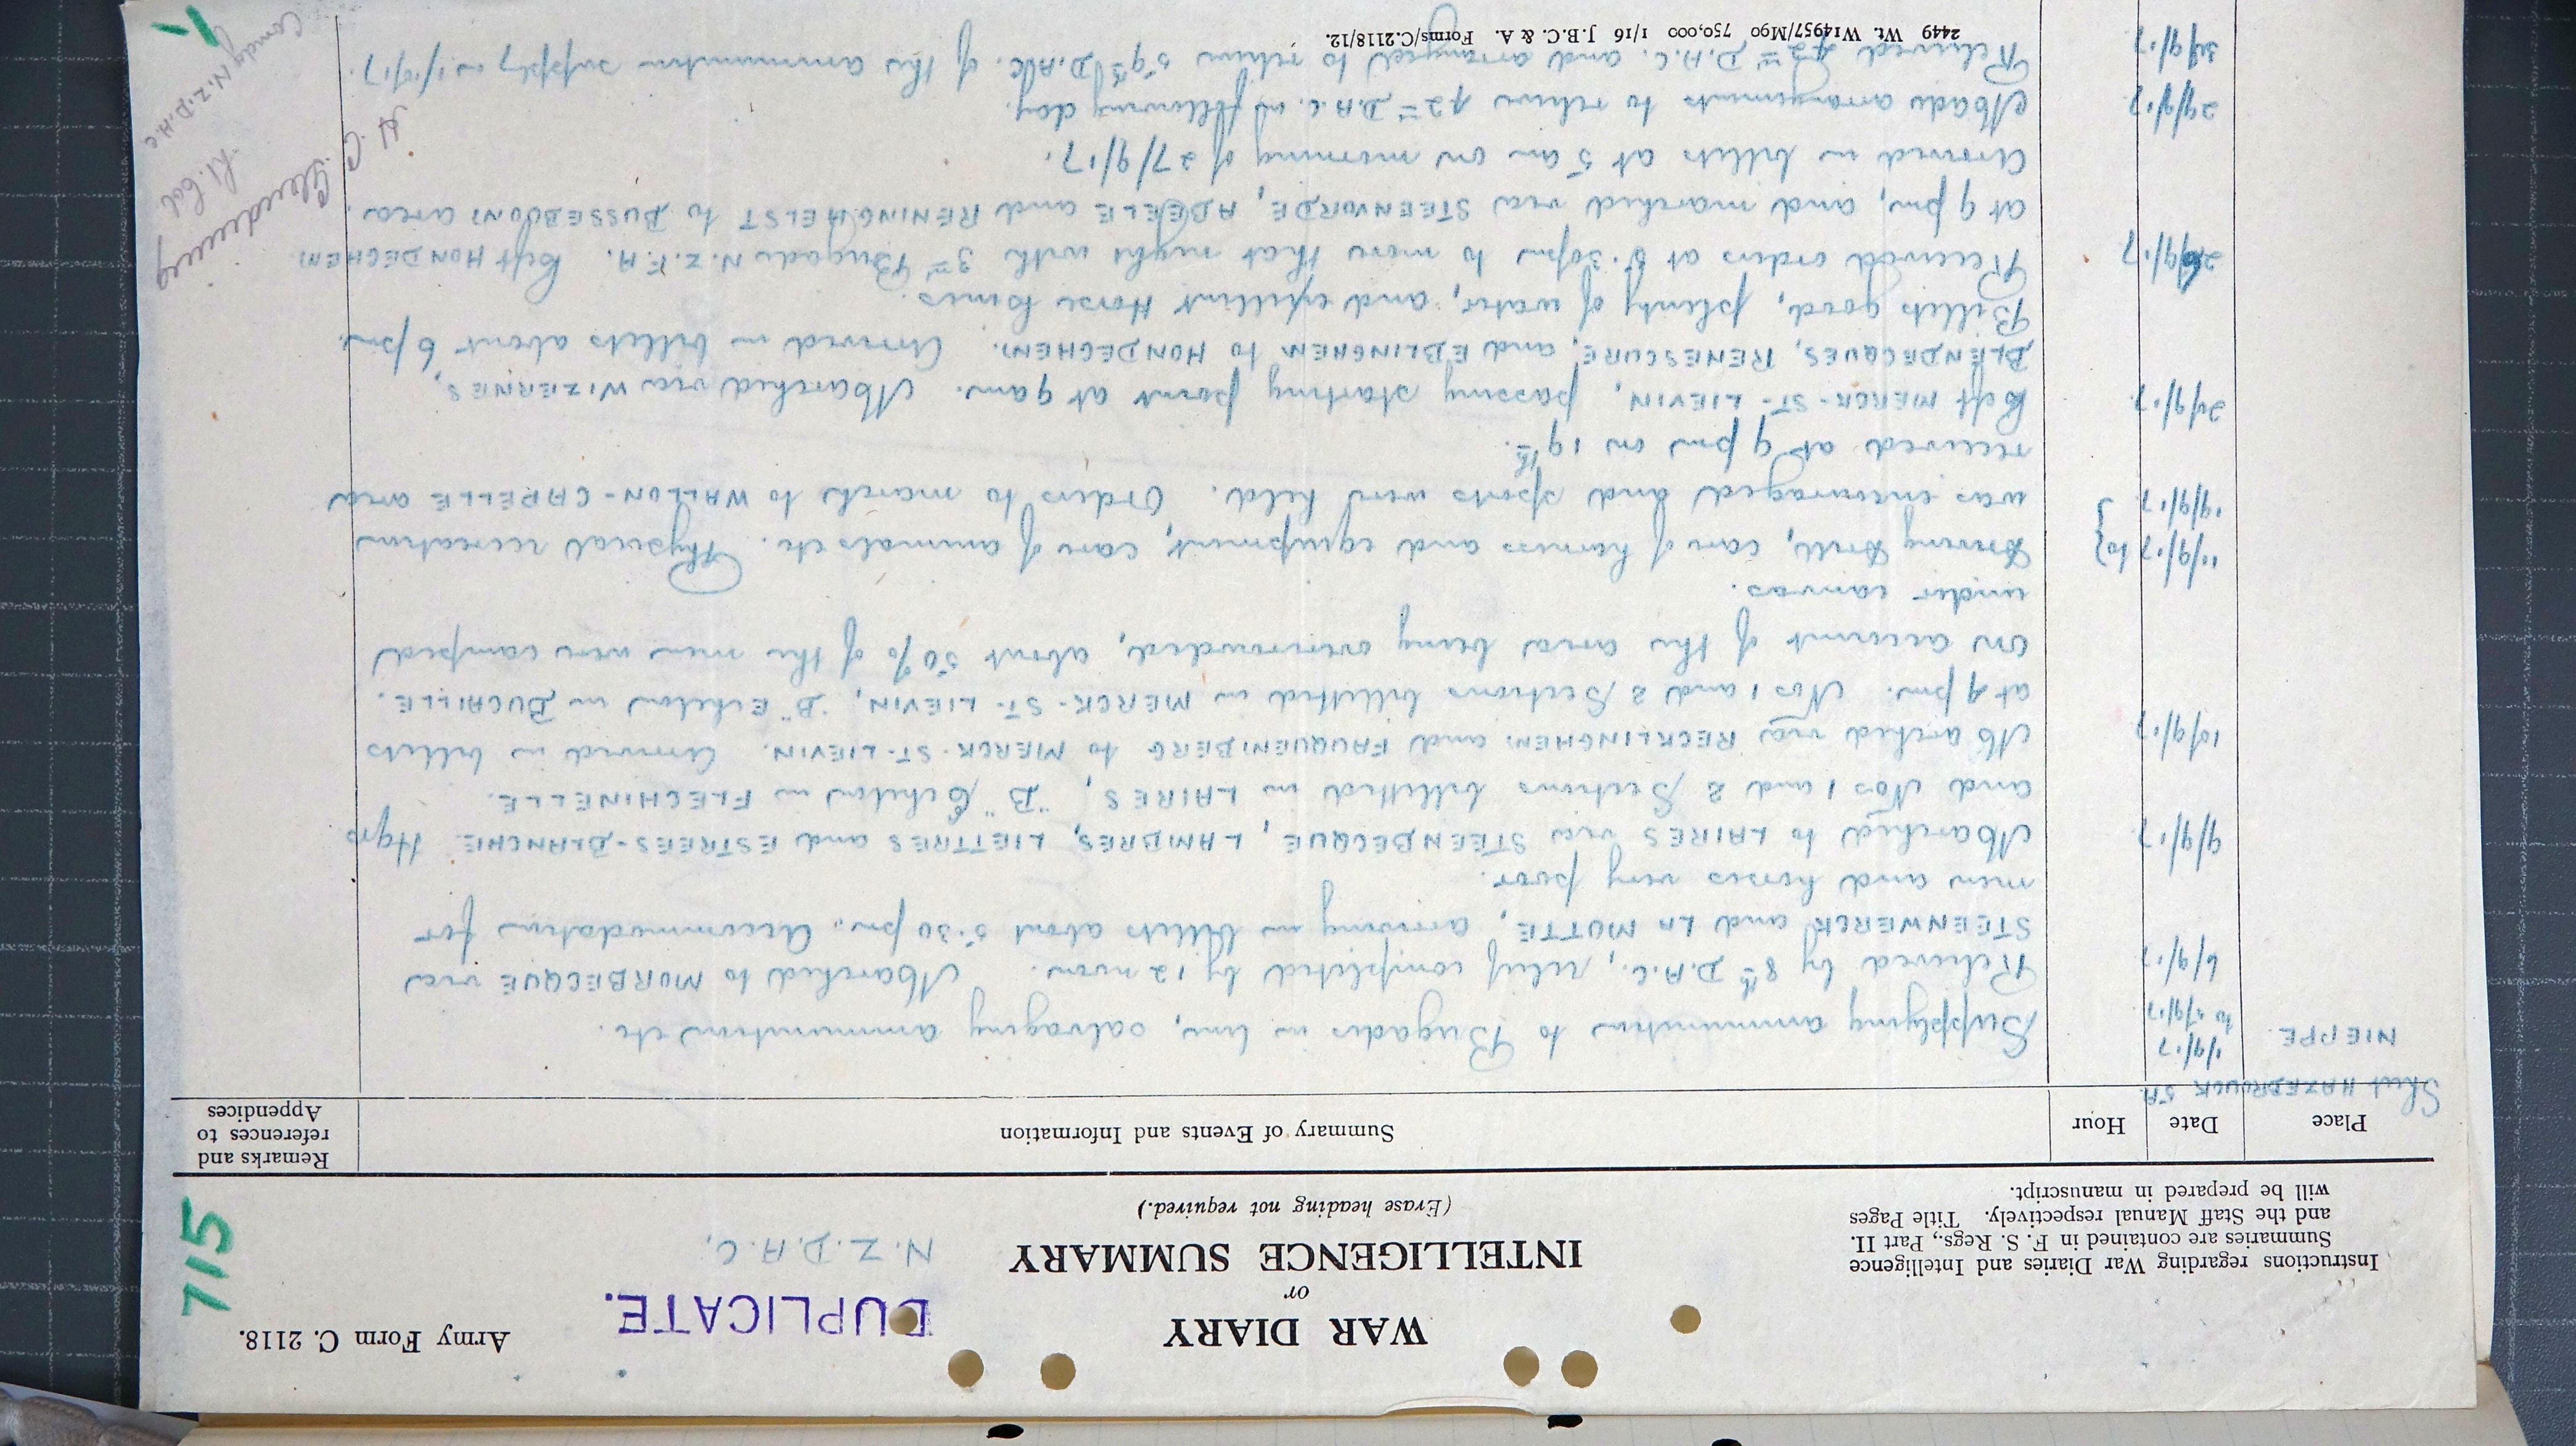 Army Form C. 2118.
715
WAR DIARY
or
INTELLIGENCE SUMMARY
(Erase heading not required.)
DUPLICATE.
N.Z.D.A.C.
Instructions regarding War Diaries and Intelligence
Summaries are contained in F. S. Regs., Part II.
and the Staff Manual respectively. Title Pages
will be prepared in manuscript.
Place Date Hour Summary of Events and Information Remarks and references to Appendices
Sheet HAZEBROUCK 5A
NIEPPE 1/9/17 to 5/9/17 Supplying ammunition to Brigades in line, salvaging ammunition etc.
6/9/17 Relieved by 8th D.A.C., relief completed by 12 noon. Marched to MORBECQUE via
STEENWERCK and LA MOTTE, arriving in billets about 5.30 pm. Accommodation for
men and horses very poor.
9/9/17 Marched to LAIRES via STEENBECQUE, LAMBRES, LIETTRES and ESTREES-BLANCHE. Hqrs
and Nos 1 and 2 Sections billetted in LAIRES, "B" Echelon in FLECHINELLE.
10/9/17 Marched via RECKLINGHEM and FAUQUEMBERG to MERCK-ST-LIEVIN. Arrived in billets
at 4 pm. Nos 1 and 2 Sections billetted in MERCK-ST-LIEVIN, "B" Echelon in DUCHILLE.
On account of the area being overcrowded, about 50% of the men were camped
under canvas.
11/9/17 to 19/9/17 } Driving Drill, care of harness and equipment, care of animals etc. Physical recreation
was encouraged and sports were held. Orders to march to WALLON-CAPELLE area
received at 9 pm on 19th.
Left MERCK-ST-LIEVIN, passing starting point at 9 am. Marched via WIZERNES,
BLENDECQUES, RENESCURE, and EBLINGHEM to HONDEGHEM. Arrived in billets about 6 pm.
Billets good, plenty of water, and excellent Horse Lines.
26/9/17 Received orders at 5.30pm to move that night with 3rd Brigade N.Z.F.A. Left HONDEGHEM
at 9 pm, and marched via STEENVORDE, ABEELE and RENINGHELST to BUSSEBOOM area.
Arrived in billets at 5 am on morning of 27/9/17.
29/9/17 Made arrangements to relieve 42nd D.A.C. on following day.
30/9/17 Relieved 42nd D.A.C. and arranged to relieve 59th D.A.C. of the ammunition supply on 1/10/17.
H. C. Glendining
Lt. Col
Comdg N.Z.D.A.C
2449 Wt. W14957/M90 750,000 1/16 J.B.C. & A. Forms/C.2118/12.